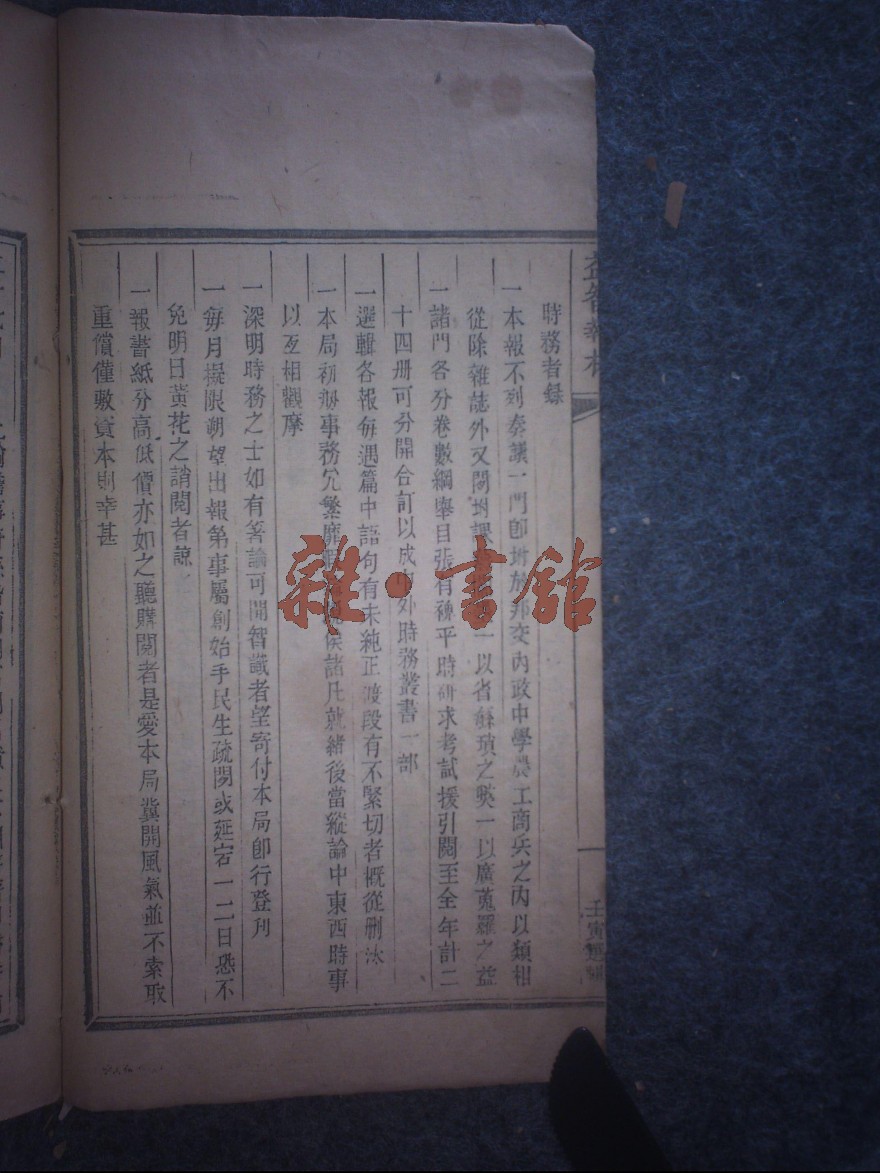 時務者録
一本報不列奏議一門卽坿於邦交內政中學農工商兵之內以類相
從除雜誌外又間坿課 一以省繇瑣之獘一以廣蒐羅之益
一諸門各分卷數綱舉目張有𥠖平時研求考試援引閱至全年計二
十四册可分開合訂以成中外時務叢書一部
一選輯各報每遇篇中語句有未純正段有不緊切者概從刪汰
一本局初辦事務冗繁靡暇 俟諸凡就緒後當縱論中東西時事
以互相觀摩
一深明時務之士如有箸論可開智識者望寄付本局卽行登刋
一每月擬限朔望出報第事屬創始手民生疏間或延宕一二日恐不
免明日黃花之誚閱者諒
一報書紙分高低價亦如之聽購閱者是愛本局冀開風氣並不索取
重償僅敷資本則幸甚
壬寅
雜·書館